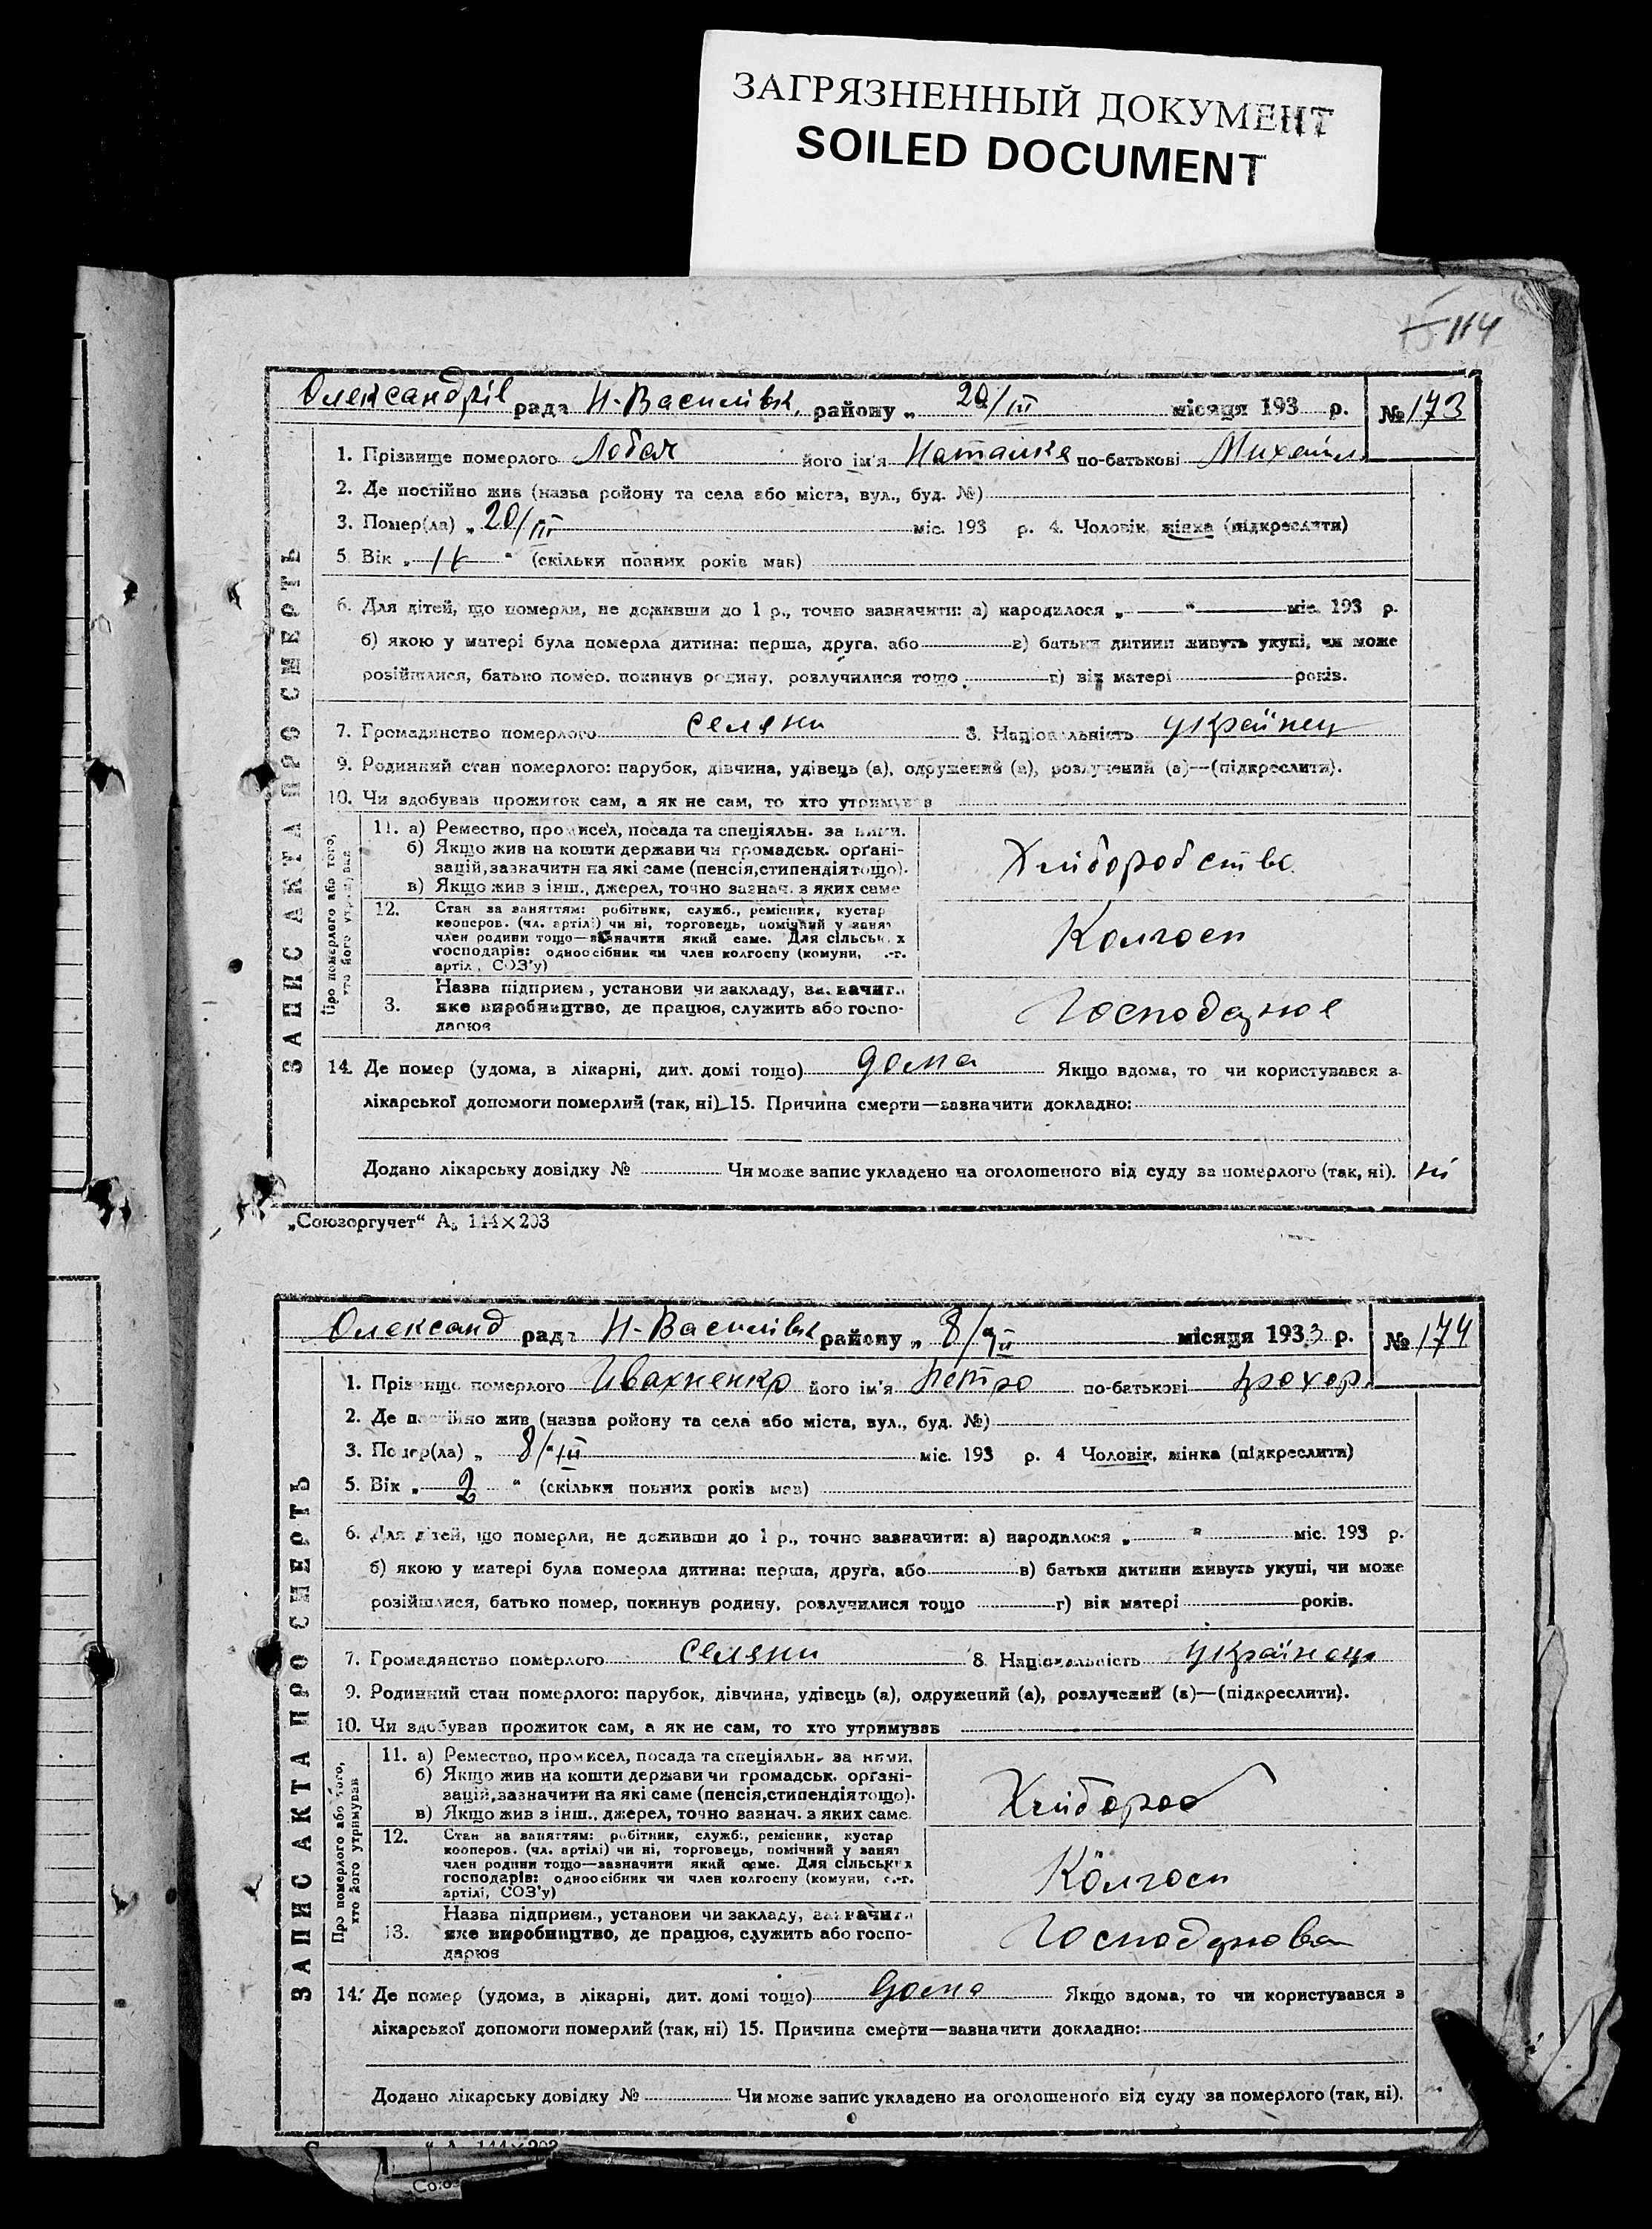 ЗАГРЯЗНЕННЫЙ ДОКУМЕНТ
SOILED DOCUMENT
114
Олександрів рада Н-Василівк. району „ 20/III місяця 193 р. № 173
1. Прізвище померлого Лобач його ім'я Наталка по-батькові Михайл.
2. Де постійно жив (назва ройону та села або міста, вул., буд. №)
3. Помер(ла) „ 20/III міс. 193 р. 4. Чоловік, жінка (підкреслити)
5. Вік „ “ (скільки повних років мав)
6. Для дітей, що померли, не доживши до 1 р., точно зазначити: а) народилося „ “ міс. 193 р.
б) якою у матері була померла дитина: перша, друга, або в) батьки дитини живуть укупі, чи може
розійшлися, батько помер, покинув родину, розлучилися тощо г) вік матері років.
7. Громадянство померлого селяни 8. Національність українец
9. Родинний стан померлого: парубок, дівчина, удівець (а), одружений (а), розлучений (а)—(підкреслити).
10. Чи здобував прожиток сам, а як не сам, то хто утримував
11. а) Ремество, промисел, посада та спеціяльн. за ними.
б) Якщо жив на кошти держави чи громадськ. органі-
зацій, зазначити на які саме (пенсія, стипендія тощо).
в) Якщо жив з інш., джерел, точно зазнач. з яких саме
Хліборобства
12. Стан за заняттям: робітник, служб., ремісник, кустар
кооперов. (чл. артілі) чи ні, торговець, помічний у занят
член родини тощо—зазначити який саме. Для сільських
господарів: одноосібник чи член колгоспу (комуни, с.-г.
артілі, СОЗ'у)
Колгосп
3. Назва підприєм., установи чи закладу, зазначити
яке виробництво, де працює, служить або госпо-
дарює
Господарює
14. Де помер (удома, в лікарні, дит. домі тощо) дома Якщо вдома, то чи користувався з
лікарської допомоги померлий (так, ні) 15. Причина смерти—зазначити докладно:
Додано лікарську довідку № Чи може запис укладено на оголошеного від суду за померлого (так, ні). ні
ЗАПИС АКТА ПРО СМЕРТЬ
Про померлого або того,
хто його утримував
„Союзоргучет“ А₅ 144×203
Олександ рада Н-Василівк району „ 8/III місяця 1933 р. № 174
1. Прізвище померлого Ивахненко його ім'я Петро по-батькові Прохор.
2. Де постійно жив (назва ройону та села або міста, вул., буд. №)
3. Помер(ла) „ 8/III міс. 193 р. 4 Чоловік, жінка (підкреслити)
5. Вік „ 2 “ (скільки повних років мав)
6. Для дітей, що померли, не доживши до 1 р., точно зазначити: а) народилося „ “ міс. 193 р.
б) якою у матері була померла дитина: перша, друга, або в) батьки дитини живуть укупі, чи може
розійшлися, батько помер, покинув родину, розлучилися тощо г) вік матері років.
7. Громадянство померлого селяни 8. Національність українець
9. Родинний стан померлого: парубок, дівчина, удівець (а), одружений (а), розлучений (а)—(підкреслити).
10. Чи здобував прожиток сам, а як не сам, то хто утримував
11. а) Ремество, промисел, посада та спеціяльн. за ними.
б) Якщо жив на кошти держави чи громадськ. органі-
зацій, зазначити на які саме (пенсія, стипендія тощо).
в) Якщо жив з інш., джерел, точно зазнач. з яких саме.
Хлібороб
12. Стан за заняттям: робітник, служб., ремісник, кустар
кооперов. (чл. артілі) чи ні, торговець, помічний у занят
член родини тощо—зазначити який саме. Для сільських
господарів: одноосібник чи член колгоспу (комуни, с.-г.
артілі, СОЗ'у)
Колгосп
13. Назва підприєм., установи чи закладу, зазначити
яке виробництво, де працює, служить або госпо-
дарює
Господарюва
14. Де помер (удома, в лікарні, дит. домі тощо) дома Якщо вдома, то чи користувався з
лікарської допомоги померлий (так, ні) 15. Причина смерти—зазначити докладно:
Додано лікарську довідку № Чи може запис укладено на оголошеного від суду за померлого (так, ні).
ЗАПИС АКТА ПРО СМЕРТЬ
Про померлого або того,
хто його утримував